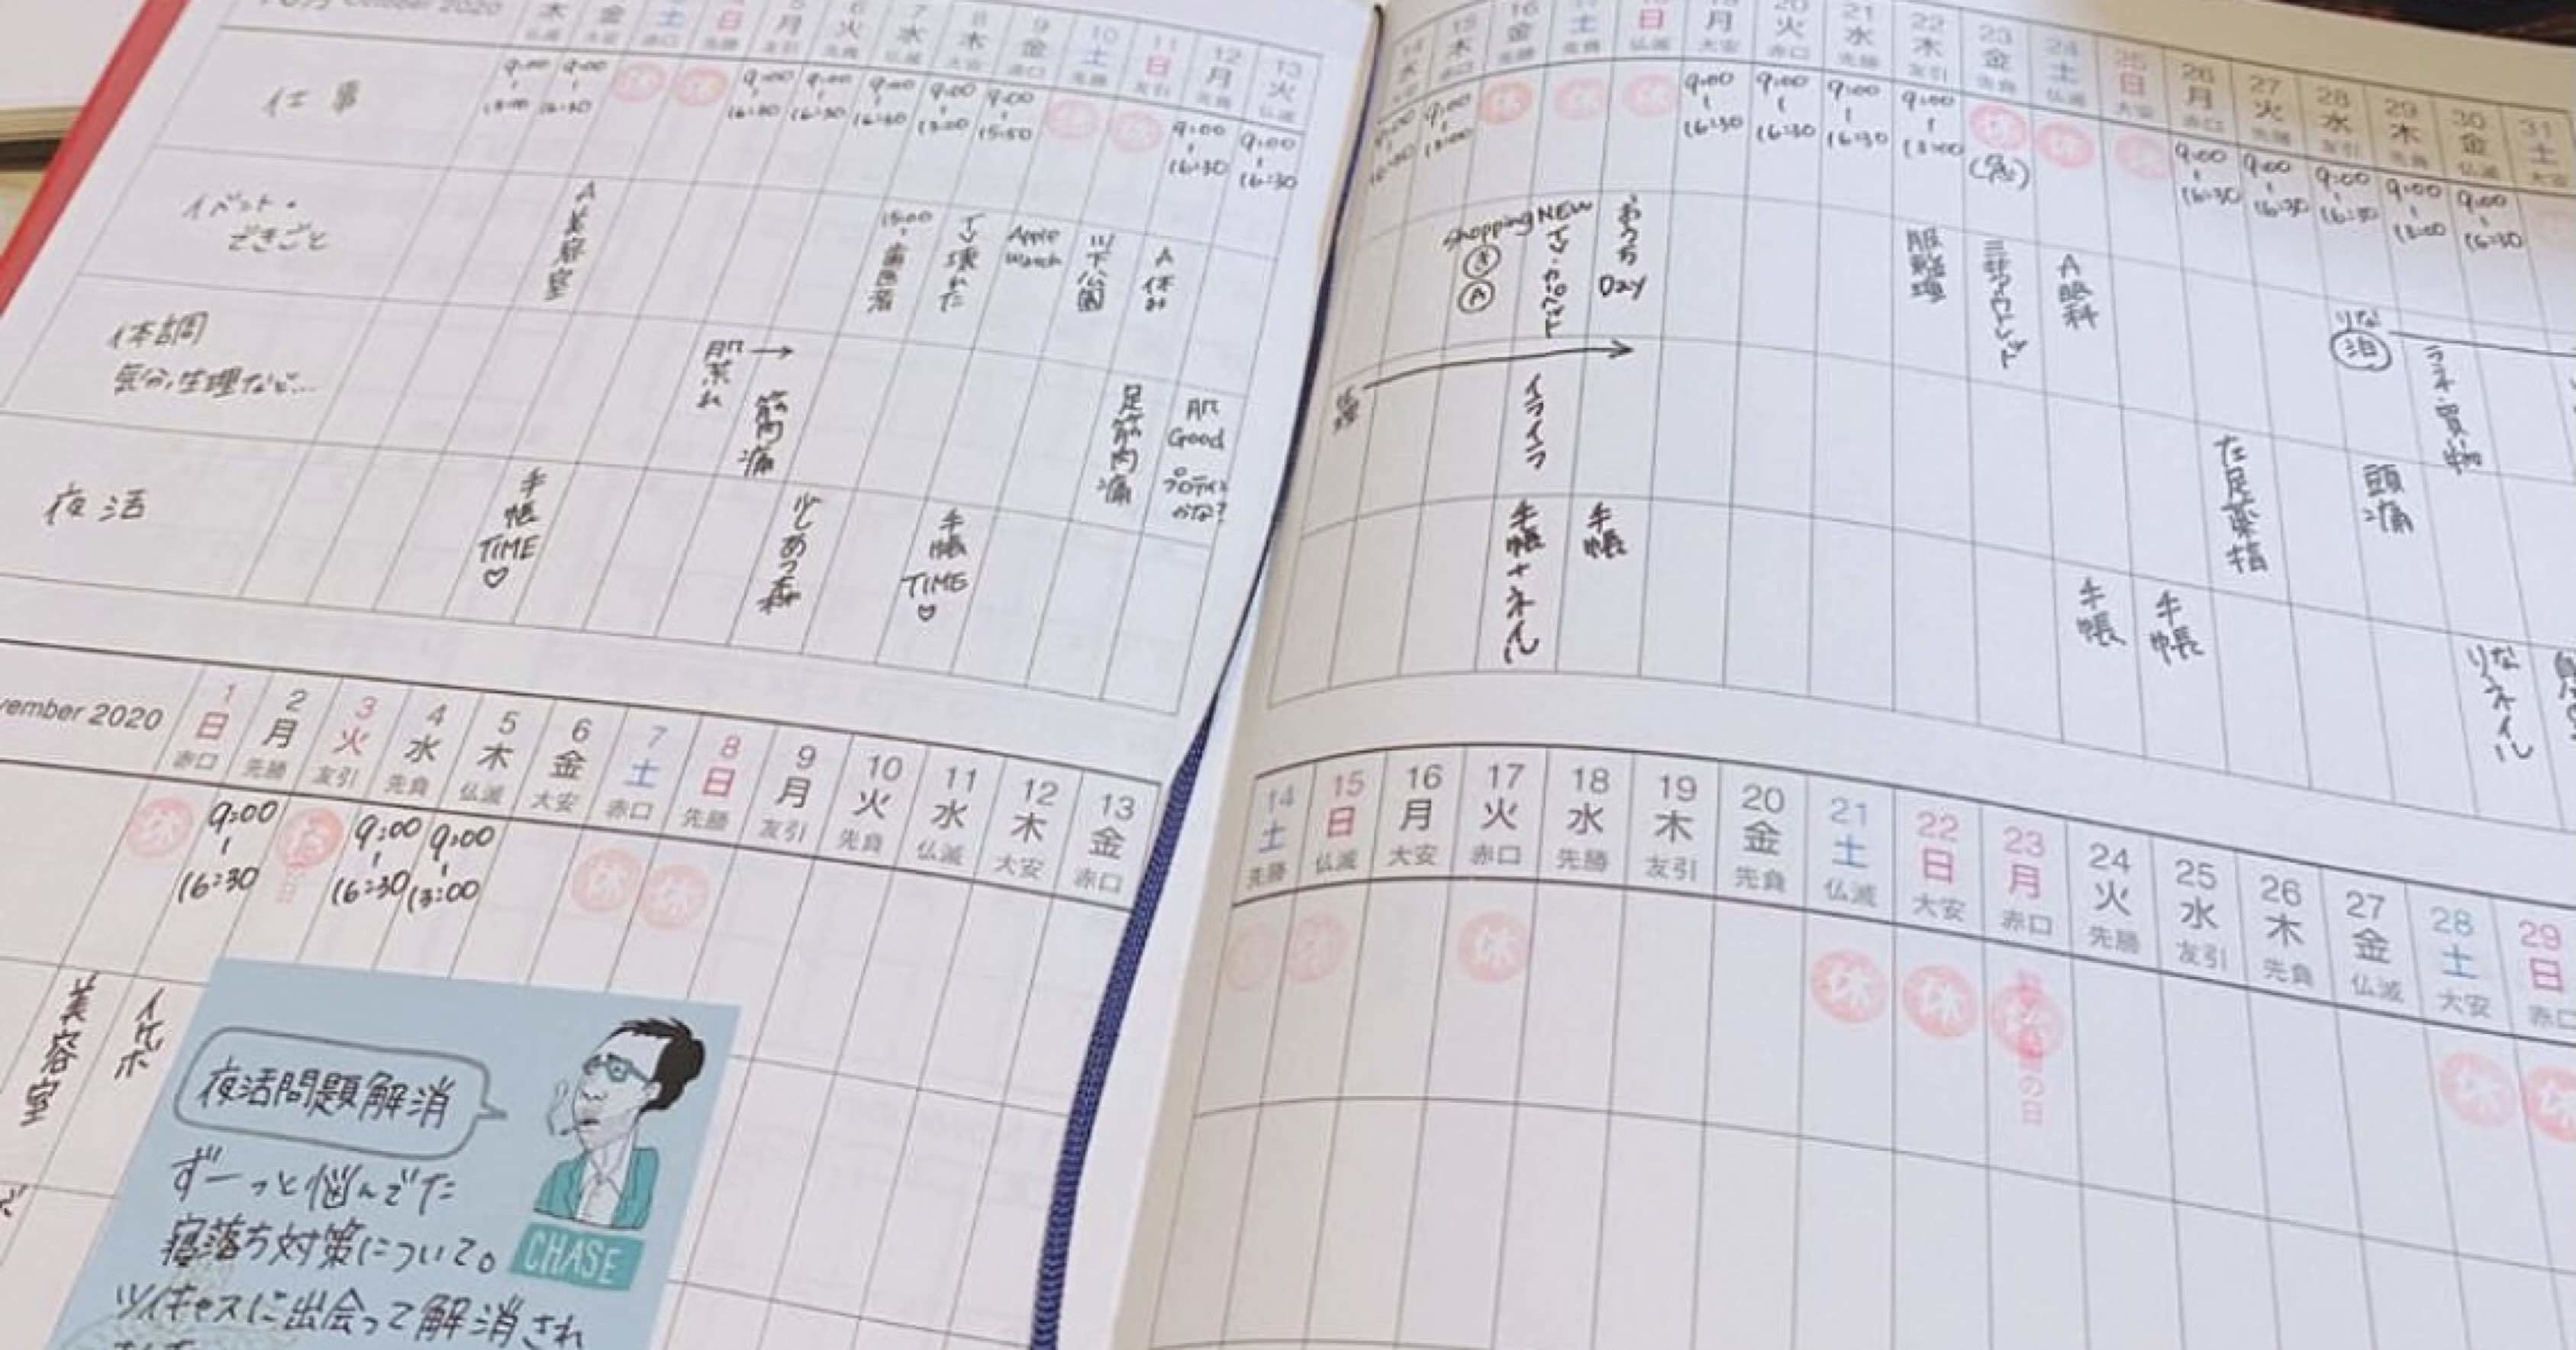 October 2020
木 金 土 日 月 火 水 木 金 土 日 月 火
5 6 7 8 9 10 11 12 13
仏滅 大安 赤口 先勝 友引 先負 仏滅 大安 赤口 先勝 友引 先負 仏滅
仕事
9:00 9:00 休 休 9:00 9:00 9:00 9:00 9:00 休 休 9:00 9:00
13:00 16:30 16:30 16:30 16:30 13:00 15:50 16:30 16:30
イベント・
できごと
A美容室
15:00 歯医者
TV壊れた
Apple
Watch
山下公園
A休み
体調
気分、生理など…
肌荒れ→
筋肉痛
足筋肉痛
肌
Good
プロテイン
かな?
夜活
手帳
TIME
♡
少しあつ森
手帳
TIME
♡
14 15 16 17 18 19 20 21 22 23 24 25 26 27 28 29 30 31
水 木 金 土 日 月 火 水 木 金 土 日 月 火 水 木 金 土
大安 赤口 先勝 先負 仏滅 大安 赤口 先勝 友引 先負 仏滅 大安 赤口 先勝 友引 先負 仏滅 大安
9:00 9:00 休 休 休 9:00 9:00 9:00 9:00 休 休 休 9:00 9:00 9:00 9:00 9:00
16:30 13:00 16:30 16:30 16:30 13:00 16:30 16:30 16:30 13:00 16:30
Shopping
Ⓐ
NEW
TV・カーペット
おうち
Day
服整理
三井アウトレット
A眼科
りな
泊
ランチ・買い物
イライラ
左足薬指
頭痛
手帳+ネイル
手帳
手帳
手帳
りなネイル
vember 2020
1 2 3 4 5 6 7 8 9 10 11 12 13
日 月 火 水 木 金 土 日 月 火 水 木 金
赤口 先勝 友引 先負 仏滅 大安 赤口 先勝 友引 先負 仏滅 大安 赤口
休 9:00 9:00 9:00 休 休
16:30 16:30 13:00
美容室
イケボ
夜活問題解消
ずーっと悩んでた
寝落ち対策について。
ツイキャスに出会って解消され
CHASE
14 15 16 17 18 19 20 21 22 23 24 25 26 27 28 29
土 日 月 火 水 木 金 土 日 月 火 水 木 金 土 日
先勝 仏滅 大安 赤口 先勝 友引 先負 仏滅 大安 赤口 先勝 友引 先負 仏滅 大安 赤口
休 休 休 休 休 休 休 休
の日